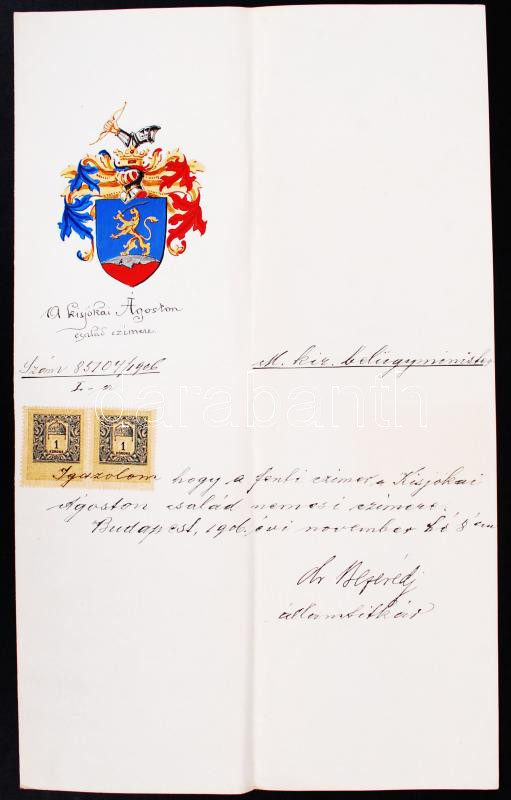 A kisjókai Ágoston
család czimere.
Szám 85107/1906
I-a
M. kir. belügyminister
1
KORONA
1
KORONA
Igazolom hogy a fenti czimer a Kisjókai
Ágoston család nemesi czimere.
Budapest, 1906 évi november hó 8 án
dr Bezerédj
államtitkár
darabanth